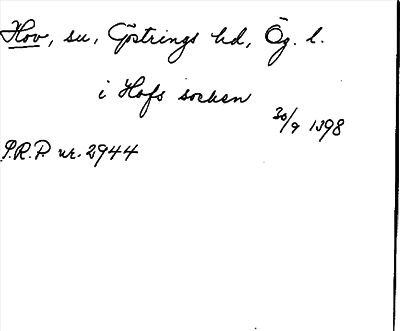 Hov, sn, Göstrings hd, Ög. l.
i Hofs socken
30/9 1398
P.R.P. nr. 2944